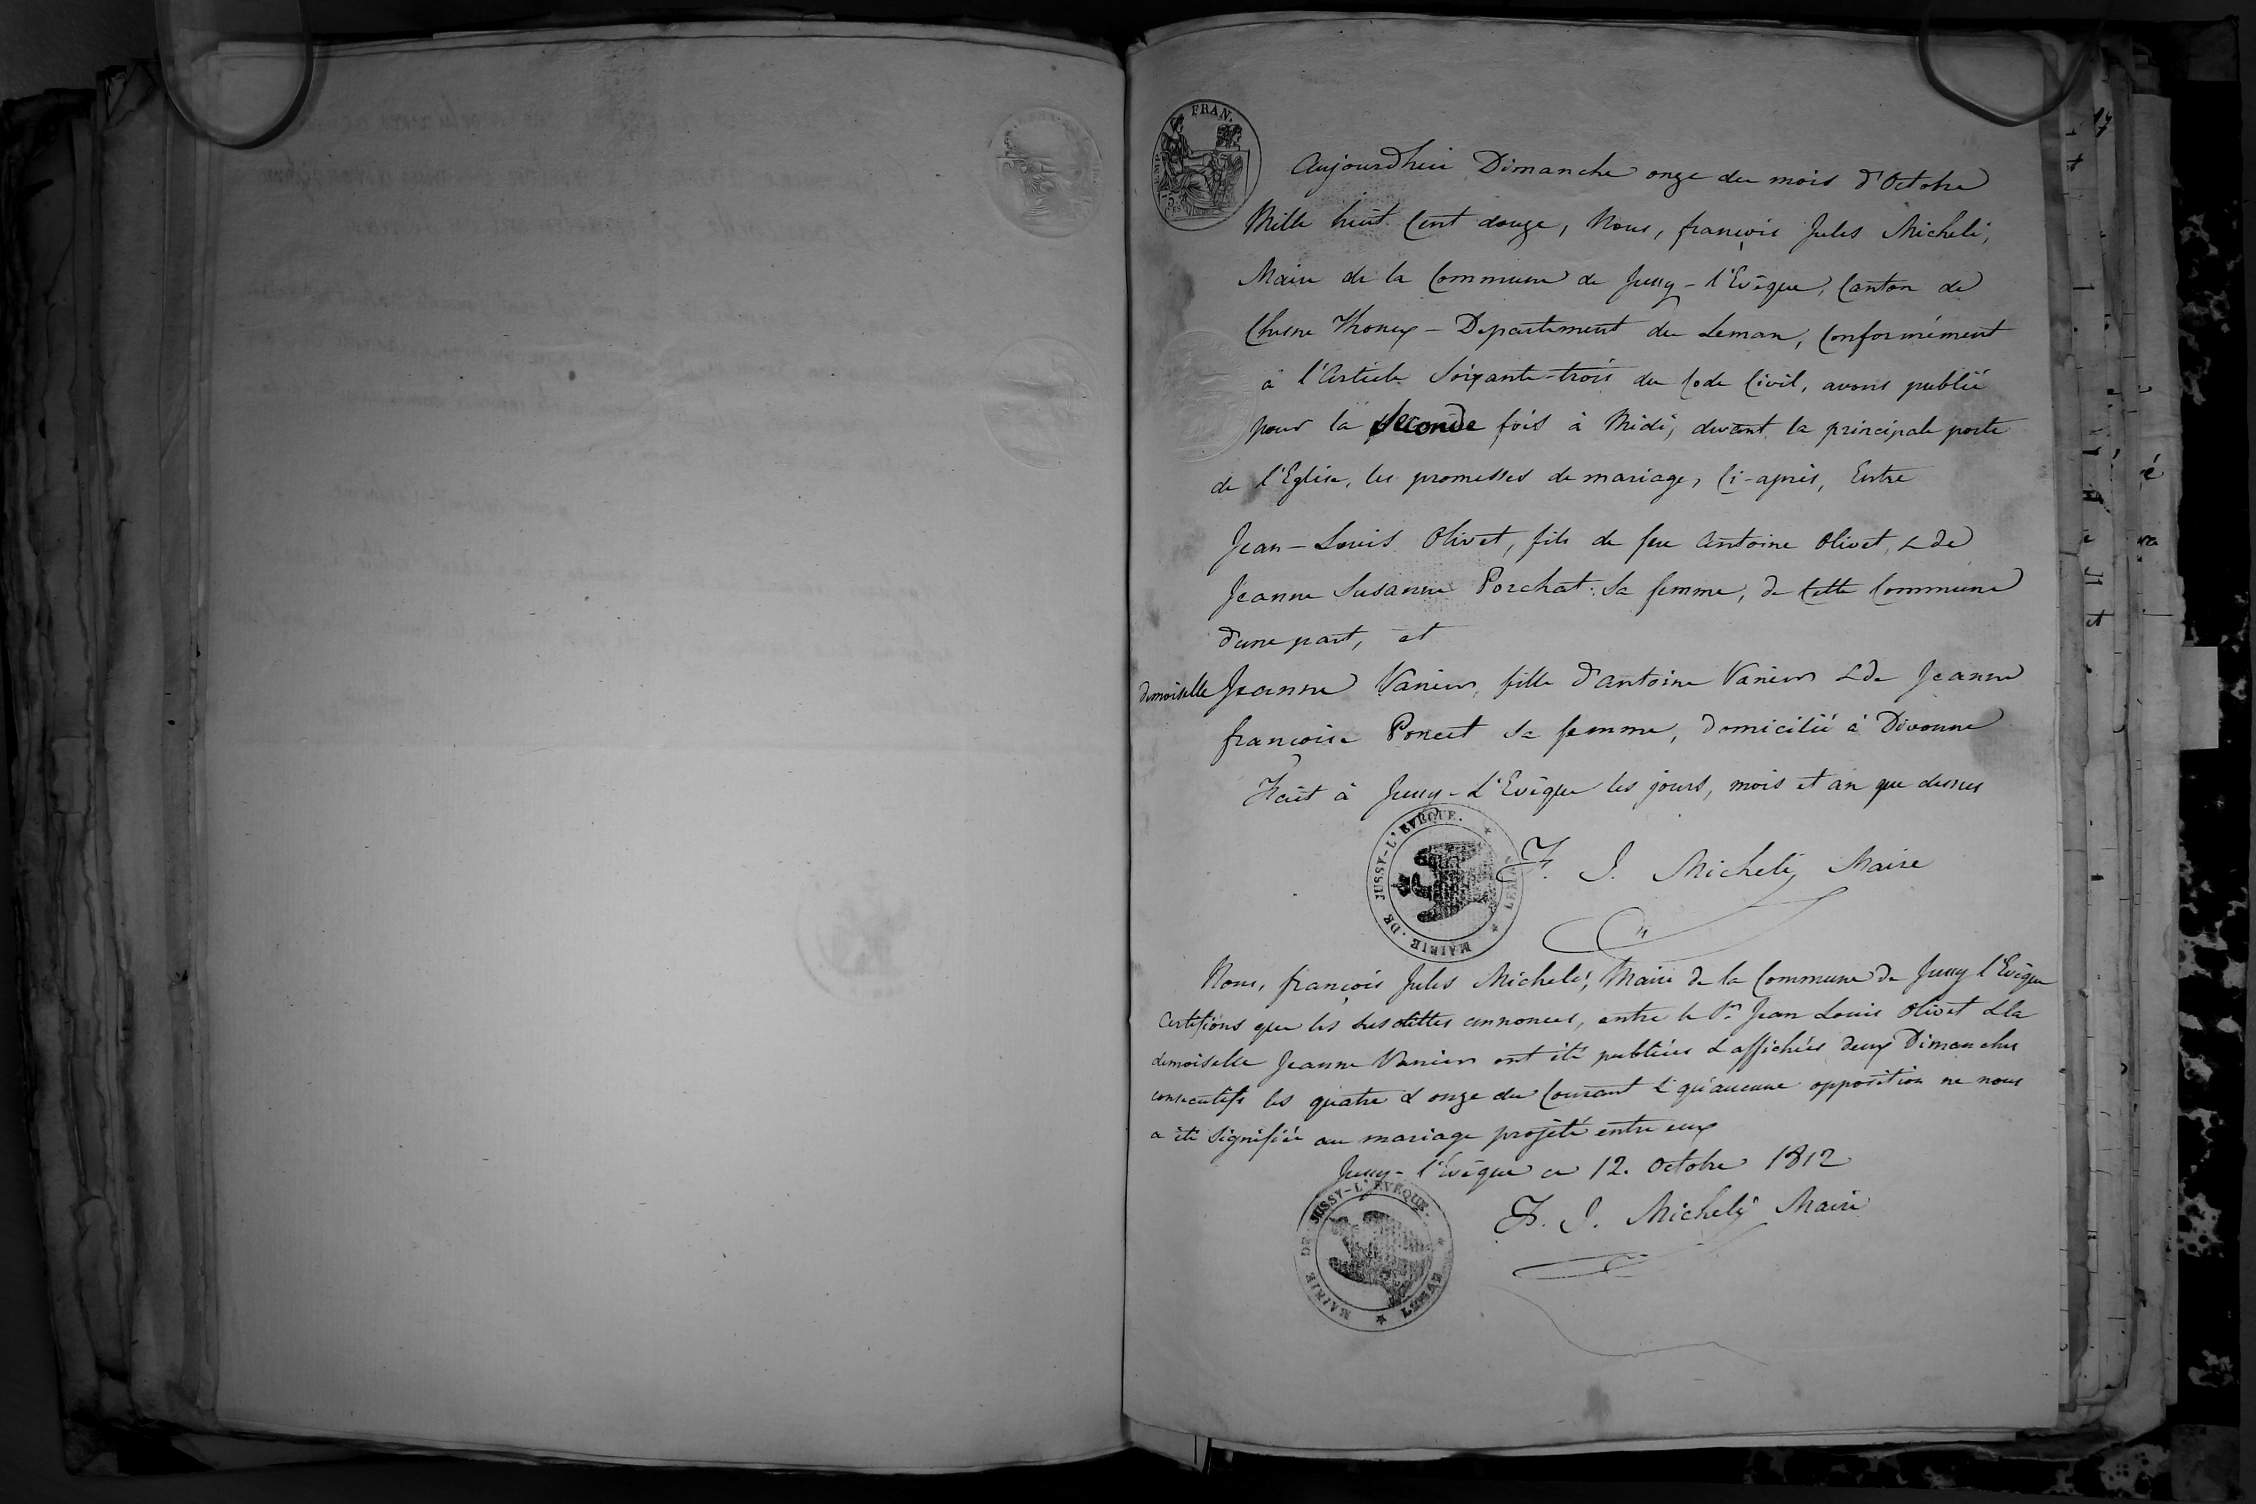 FRAN.
Aujourdhui Dimanche onze du mois d'Octobre
Mille huit Cent douze, Nous, françois Jules Micheli,
Maire de la Commune de Jussy-l'Evêque, Canton de
Chesne Thonex - Departement du Leman, Conformément
à l'Article Soixante-trois du Code Civil, avons publié
pour la seconde fois à Midi, devant la principale porte
de l'Eglise, les promesses de mariage, Ci-après, Entre
Jean-Louis Olivet, fils de feu Antoine Olivet, & de
Jeanne Susanne Porchat sa femme, de Cette Commune
d'une part, et
demoiselle Jeanne Vanier, fille d'Antoine Vanier & de Jeanne
françoise Poncet sa femme, domicilié à Divonne
Fait à Jussy-L'Evêque les jours, mois et an que dessus
MAIRIE.DE JUSSY-L'EVEQUE. LEMAN
F. J. Micheli Maire
Nous, françois Jules Micheli, Maire de la Commune de Jussy l'Evêque
Certifions que les susdittes annonces, entre le Sr. Jean Louis Olivet & la
demoiselle Jeanne Vanier ont été publiées & affichées deux Dimanches
consecutifs les quatre & onze du Courant & qu'aucune opposition ne nous
a été signifiée au mariage projété entre eux
Jussy-l'Evêque ce 12. Octobre 1812
MAIRIE DE JUSSY-L'EVEQUE. LEMAN
F. J. Micheli Maire